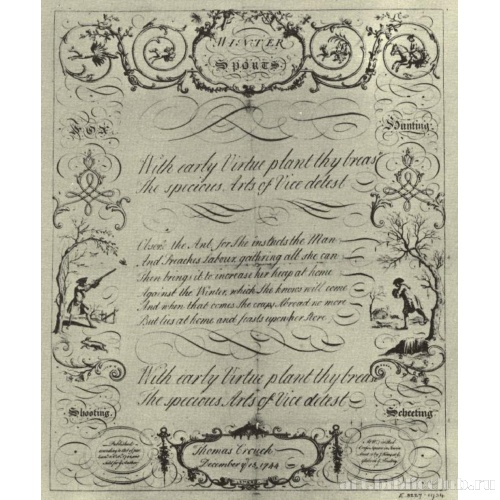 WINTER
SPORTS.
FOX
Hunting.
With early Virtue plant thy breas
The specious Arts of Vice detest
Obser. the Ant, for She instructs the Man
And Preaches Labour, gathring all she can
Then brings it to increase her heap at home
Against the Winter, which She knows will come
And when that comes She creeps Abroad no more
But lies at home and feasts upon her Store
With early Virtue plant thy breas
The specious Arts of Vice detest
Shooting.
Sceeting
Publish'd
according to Act of
Thomas Crouch
December ye 18, 1744
E.3227-1934